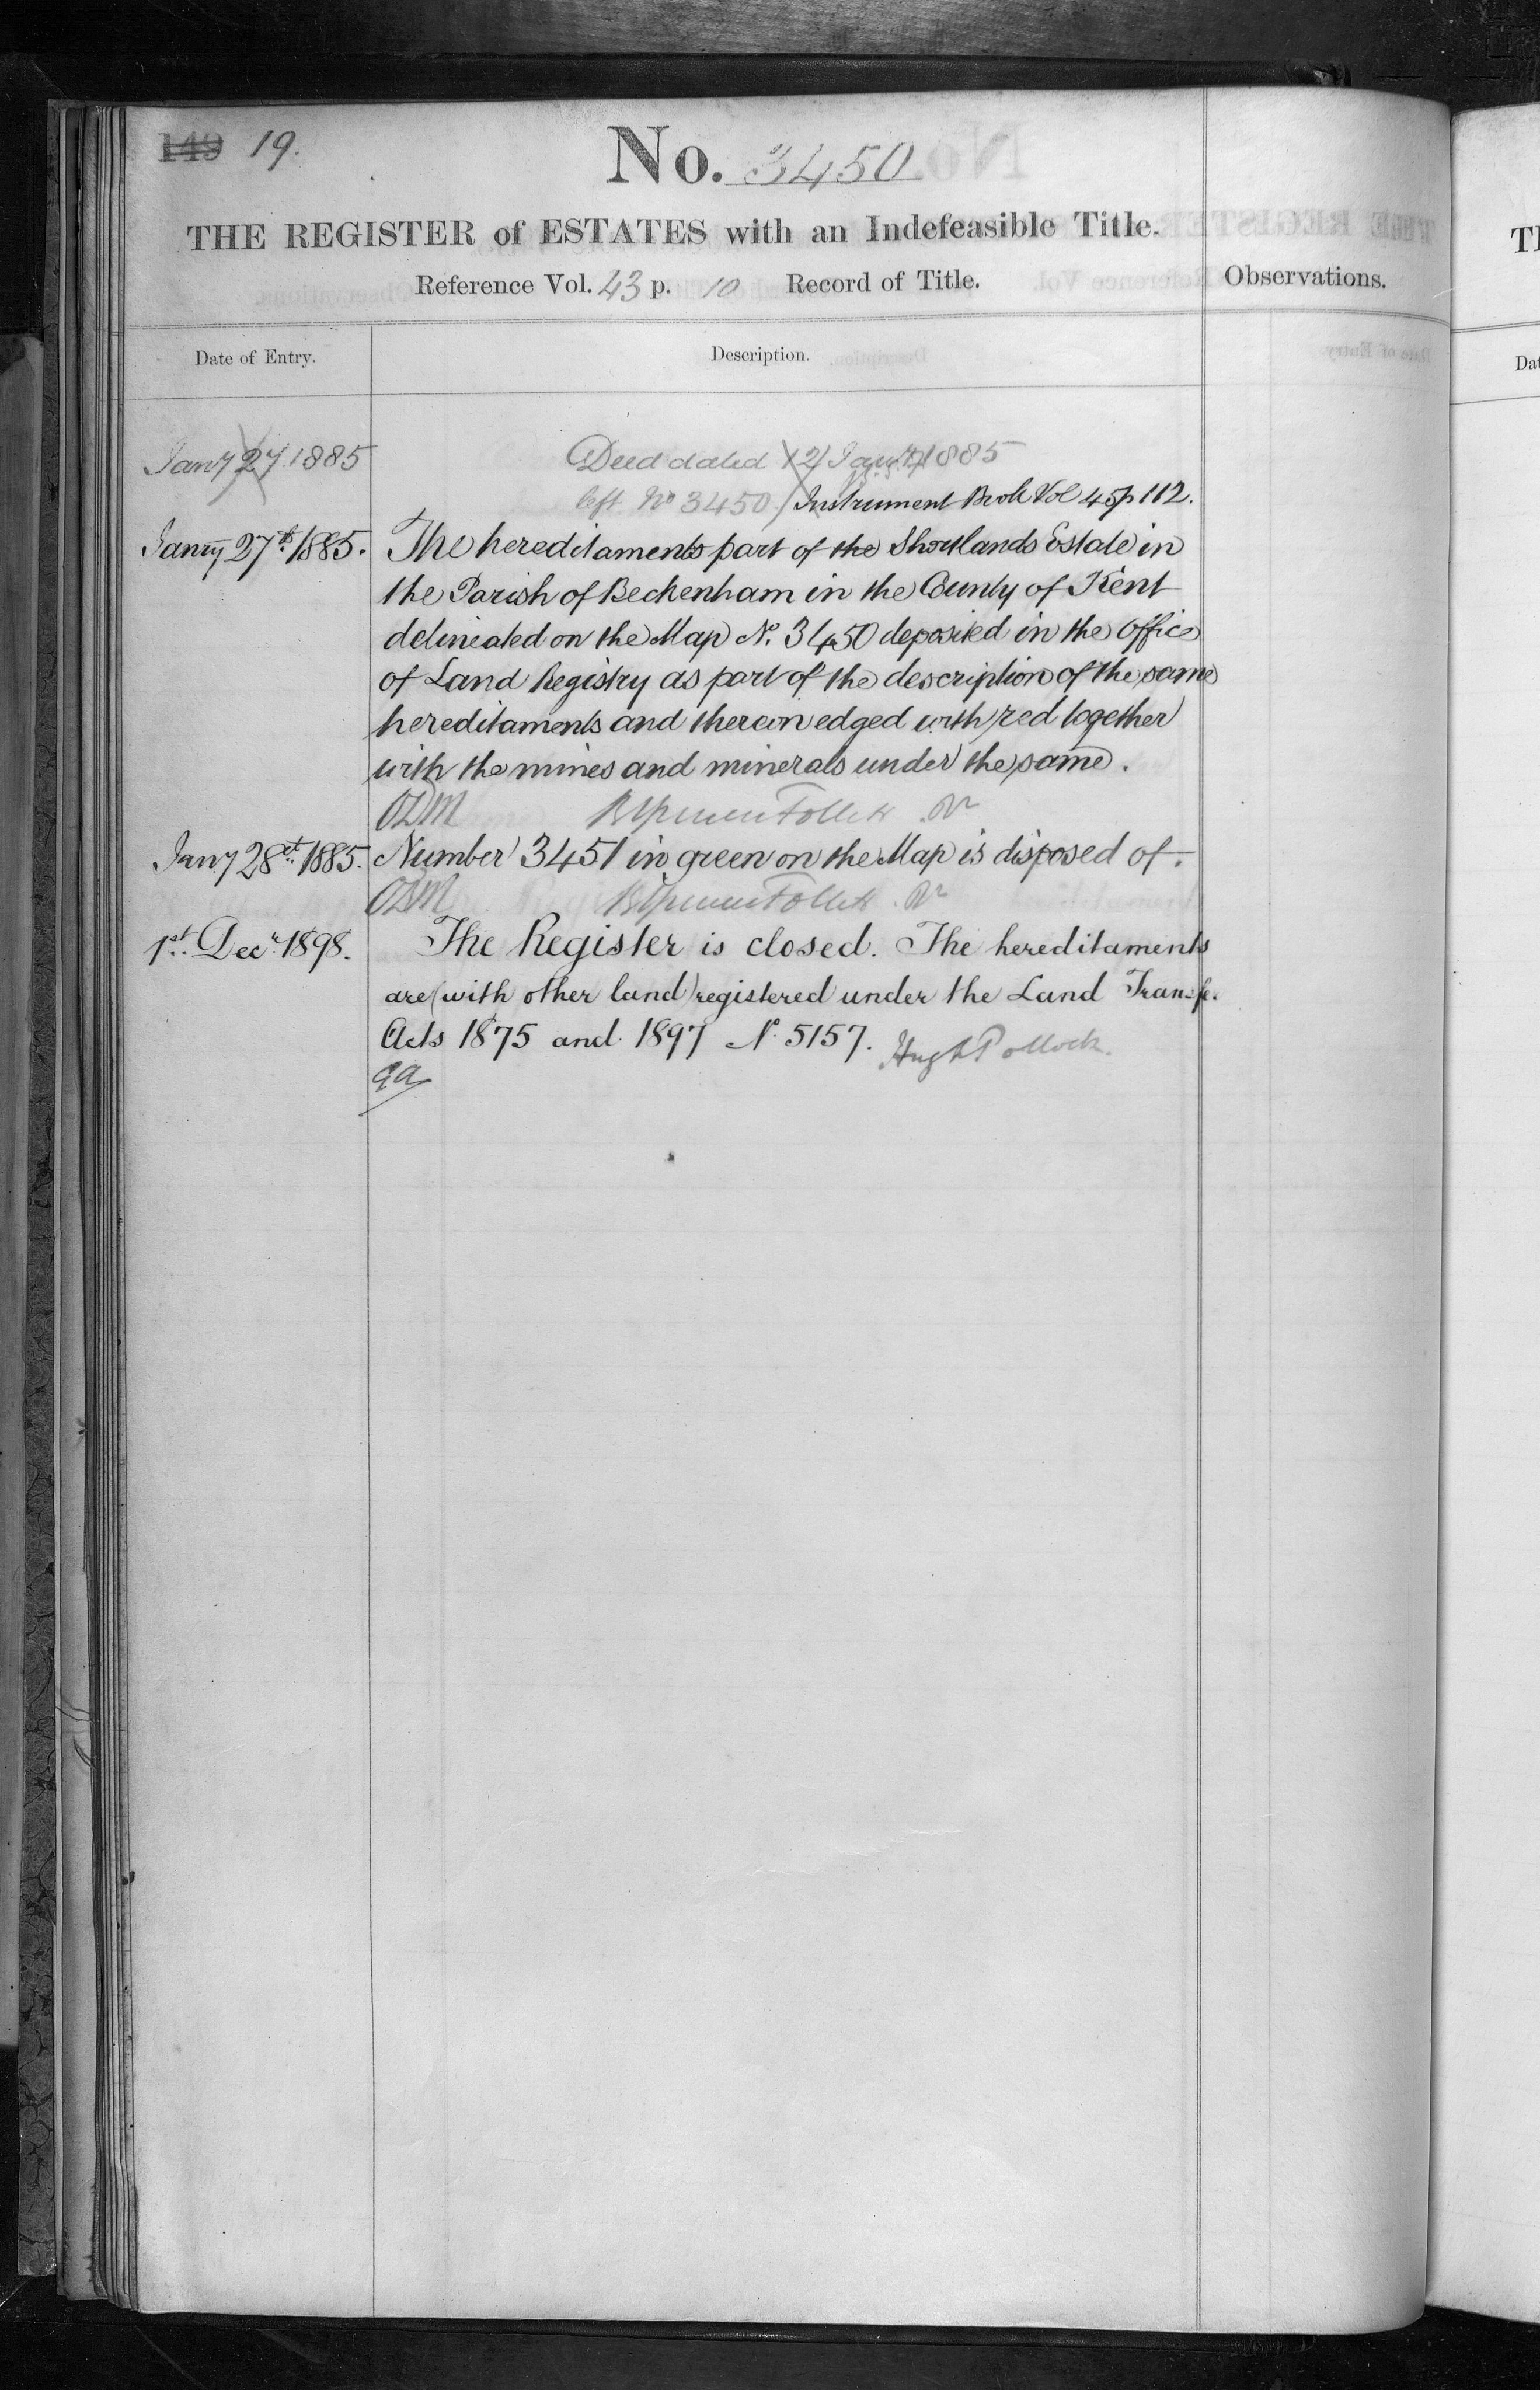 149 19.
No. 3450
THE REGISTER of ESTATES with an Indefeasible Title.
Reference Vol. 43 p. 10 Record of Title.
Observations.
Date of Entry.
Description.
Jany 27. 1885
Deed dated 12 Jany 1885
left No 3450 Instrument Book Vol 45 p 112.
Janry 27th 1885. The hereditaments part of the Shortlands Estate in
the Parish of Beckenham in the County of Kent
delineated on the Map No. 3450 deposited in the Office
of Land Registry as part of the description of the same
hereditaments and thereon edged with red together
with the mines and minerals under the same.
ODM
Jany 28th 1885. Number 3451 in green on the Map is disposed of.
ODM
1st Decr 1898. The Register is closed. The hereditaments
are (with other land) registered under the Land Transfr.
Acts 1875 and 1897 No. 5157. Hugh Pollock.